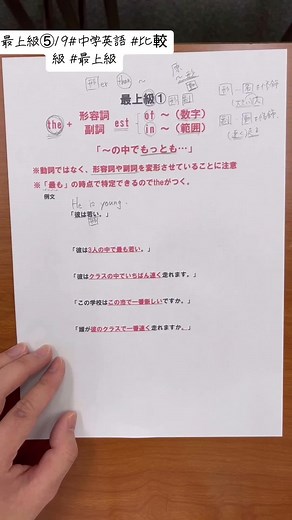 最上級⑤/9#中学英語 #比較
級 #最上級
er than ~
最上級①
the + 形容詞 副詞 est of ~（数字） in ~（範囲）
「～の中でもっとも…」
※動詞ではなく、形容詞や副詞を変形させていることに注意
※「最も」の時点で特定できるのでtheがつく。
例文
He is young.
「彼は若い。」
「彼は3人の中で最も若い。」
「彼はクラスの中でいちばん速く走れます。」
「この学校はこの市で一番新しいですか。」
「誰が彼のクラスで一番速く走れますか。」